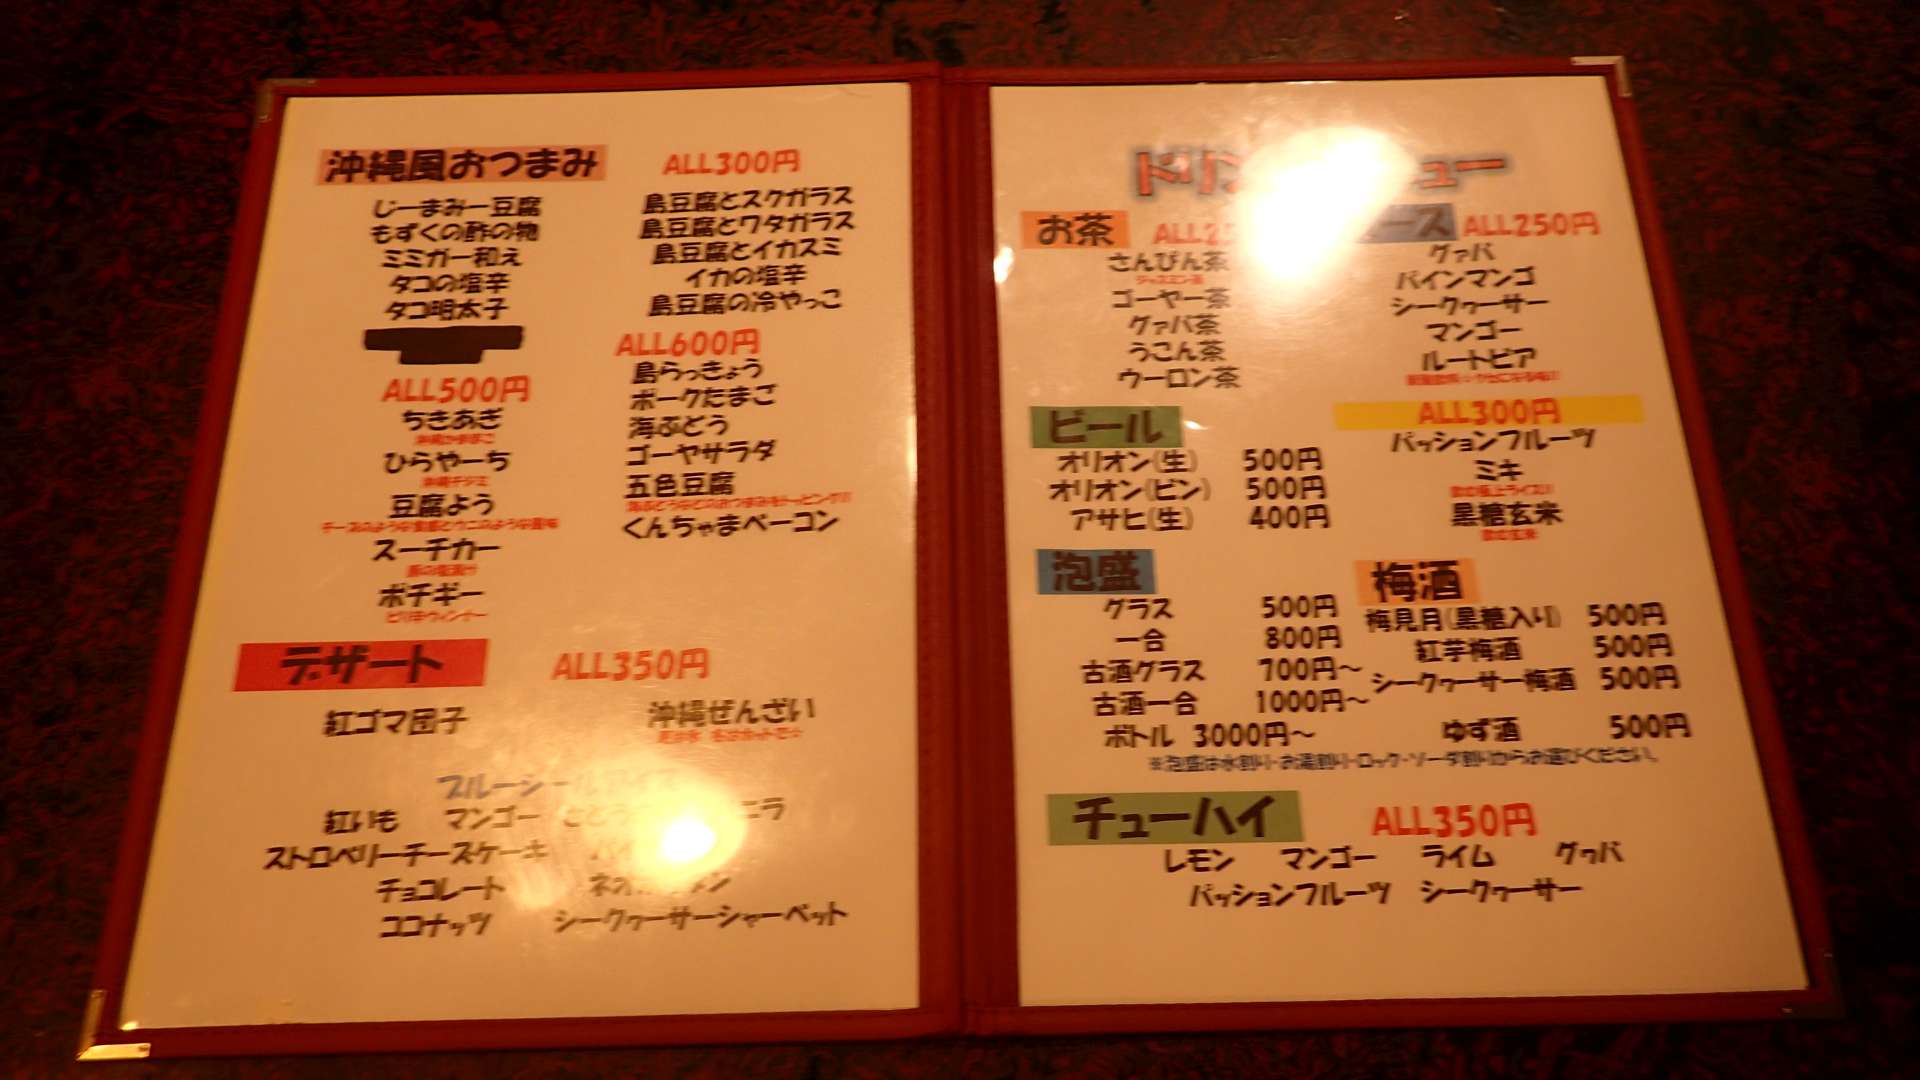 沖縄風おつまみ ALL300円
じーまみー豆腐
もずくの酢の物
ミミガー和え
タコの塩辛
タコ明太子
島豆腐とスクガラス
島豆腐とワタガラス
島豆腐とイカスミ
イカの塩辛
島豆腐の冷やっこ
ALL500円
ちきあぎ
沖縄かまぼこ
ひらやーち
沖縄チヂミ
豆腐よう
チーズのような食感とウニのような風味
スーチカー
豚の塩漬け
ポチギー
ピリ辛ウィンナー
ALL600円
島らっきょう
ポークたまご
海ぶどう
ゴーヤサラダ
五色豆腐
海ぶどうなどのおつまみをトッピング!!
くんちゃまベーコン
デザート ALL350円
紅ゴマ団子
沖縄ぜんざい
ブルーシールアイス
紅いも マンゴー
ストロベリーチーズケーキ
チョコレート
ココナッツ シークヮーサーシャーベット
お茶
さんぴん茶
ジャスミン茶
ゴーヤー茶
グァバ茶
うこん茶
ウーロン茶
ALL250円
グァバ
パインマンゴ
シークヮーサー
マンゴー
ルートビア
ALL300円
パッションフルーツ
ミキ
飲む極上ライス!!
黒糖玄米
飲む玄米
ビール
オリオン(生) 500円
オリオン(ビン) 500円
アサヒ(生) 400円
泡盛
グラス 500円
一合 800円
古酒グラス 700円～
古酒一合 1000円～
ボトル 3000円～
梅酒
梅見月(黒糖入り) 500円
紅芋梅酒 500円
シークヮーサー梅酒 500円
ゆず酒 500円
※泡盛は水割り・お湯割り・ロック・ソーダ割りからお選びください。
チューハイ ALL350円
レモン マンゴー ライム グヮバ
パッションフルーツ シークヮーサー